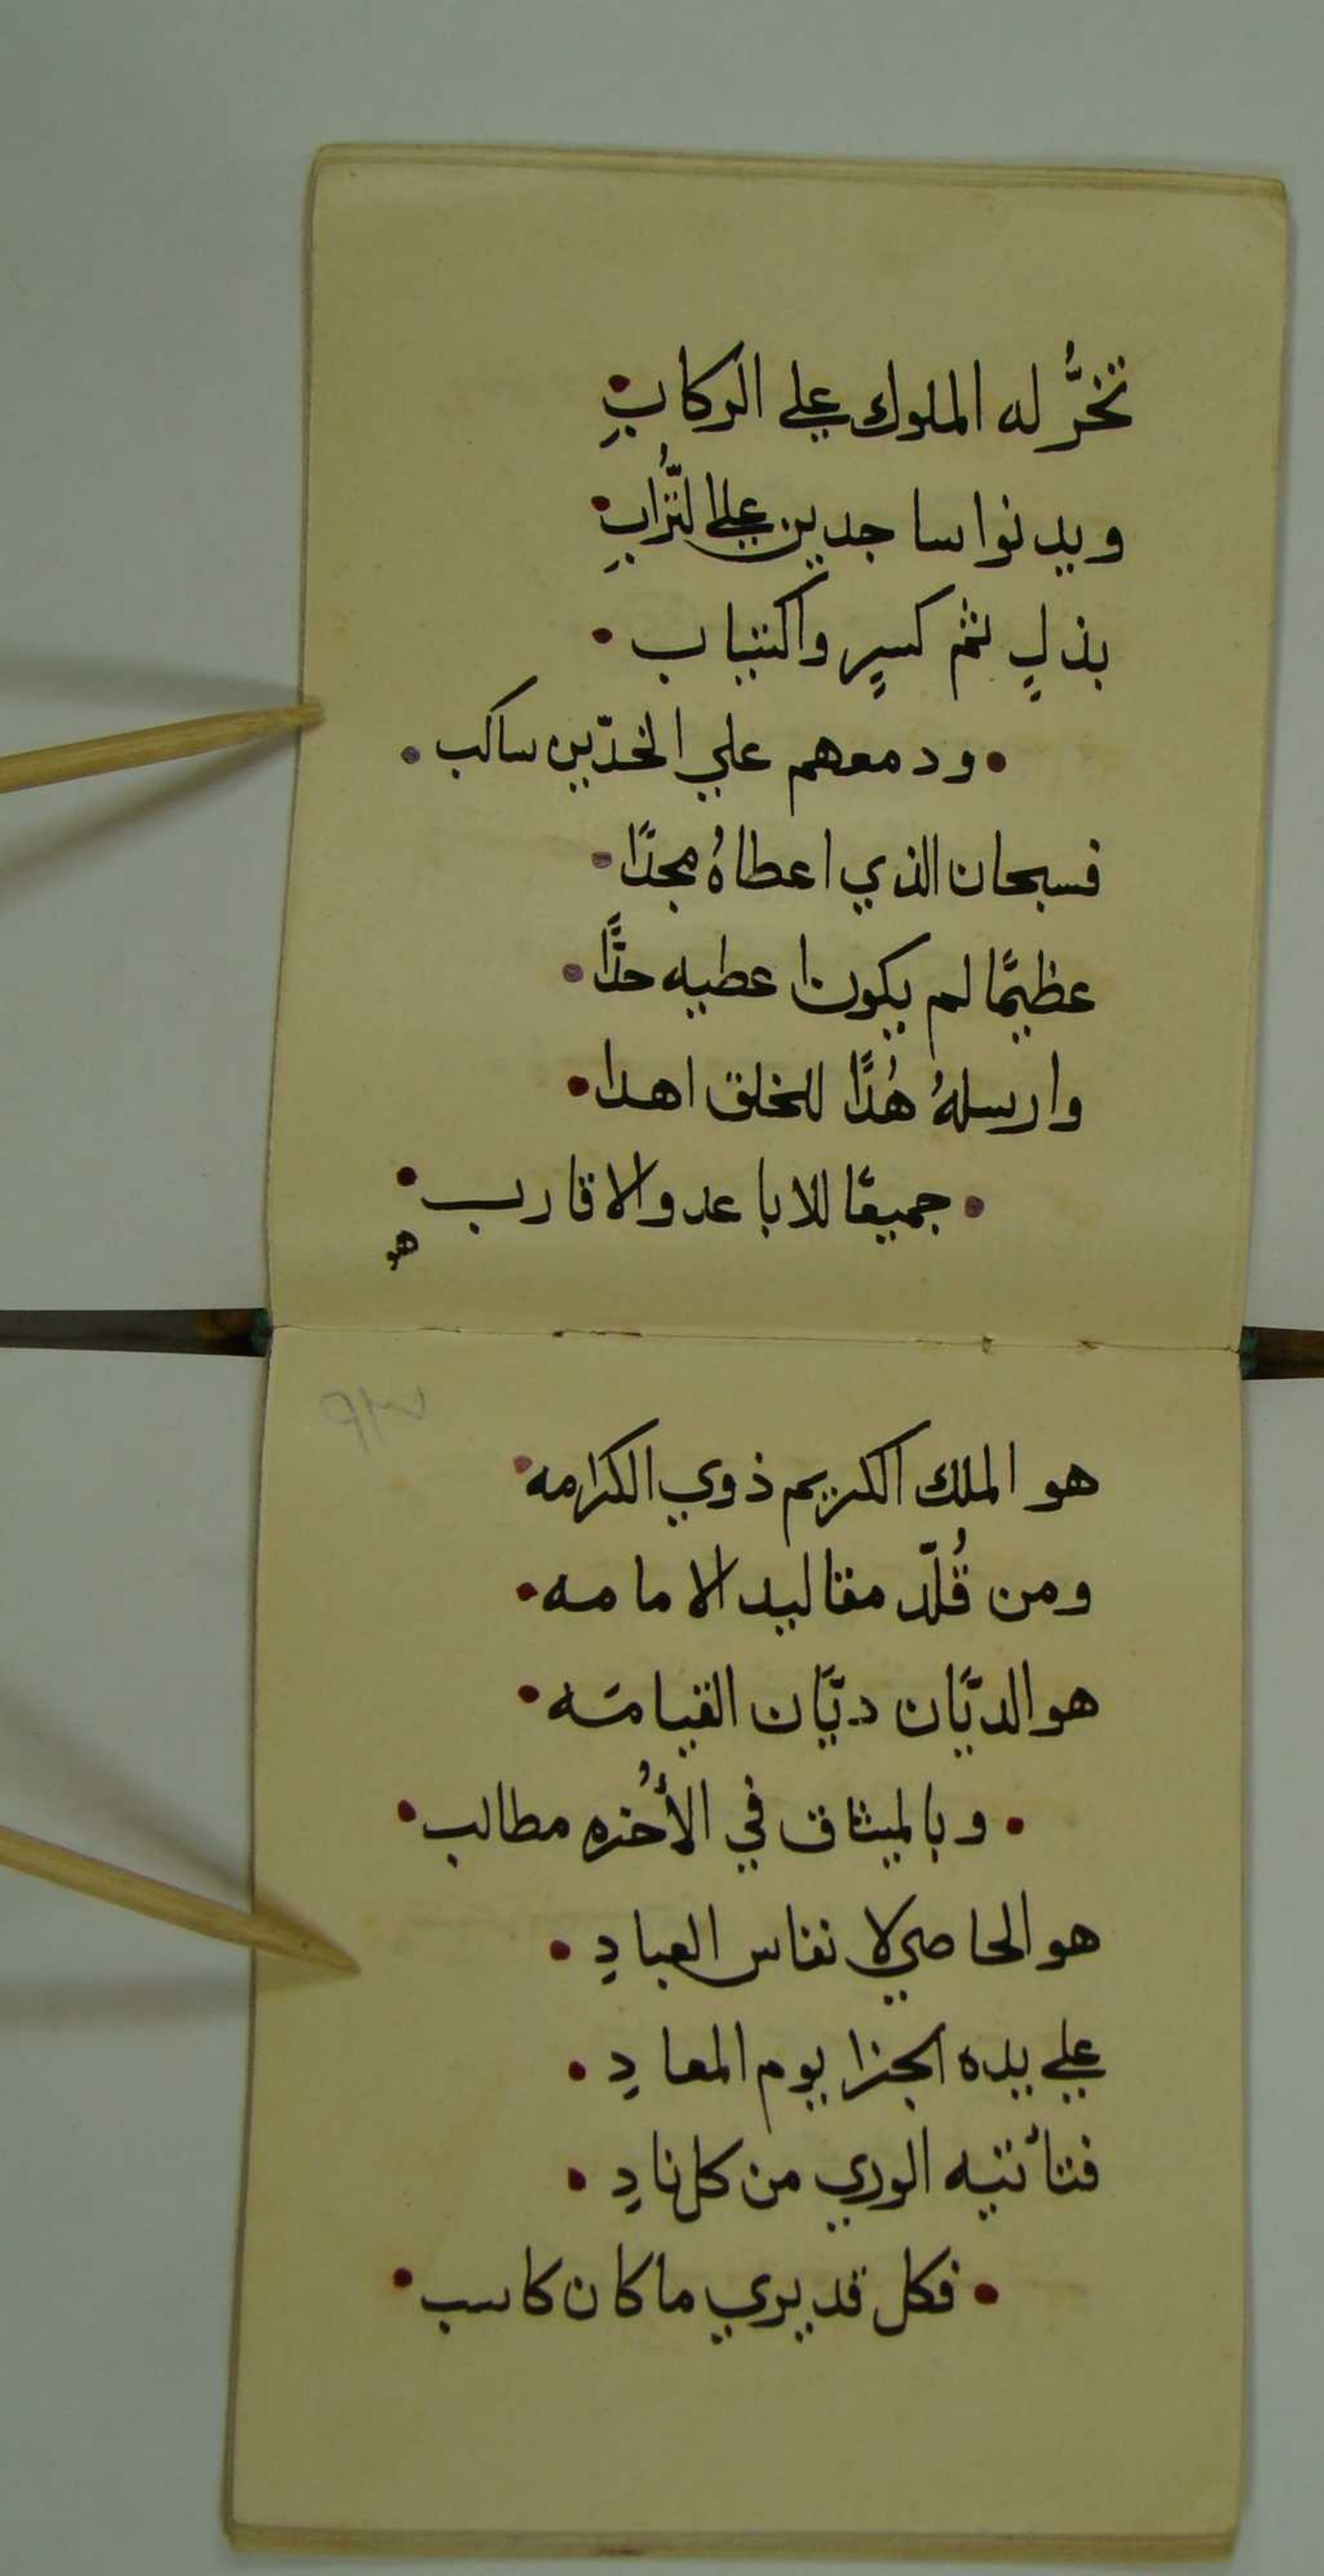 تخرُّ له الملوك علي الركابِ •
ويدنوا ساجدين علي التُّرابِ •
بذلٍ ثم كسيرٍ واكتياب •
• ودمعهم علي الخدّين ساكب •
فسبحان الذي اعطاهُ مجدًا •
عظيمًا لم يكون اعطيه حدًّا •
وارسلهُ هُدًا للخلق اهدا •
• جميعًا للاباعد والاقارب •
هو
هو الملك الكريم ذوي الكرامه •
ومن قُلّد مقاليد الامامه •
هو الديّان ديّان القيامَه •
• وبالميثاق في الأُخره مطالب •
هو الحاصي لانفاس العبادِ •
علي يده الجزا يوم المعادِ •
فتأتيه الوري من كل نادِ •
• فكل قد يري ما كان كاسب •